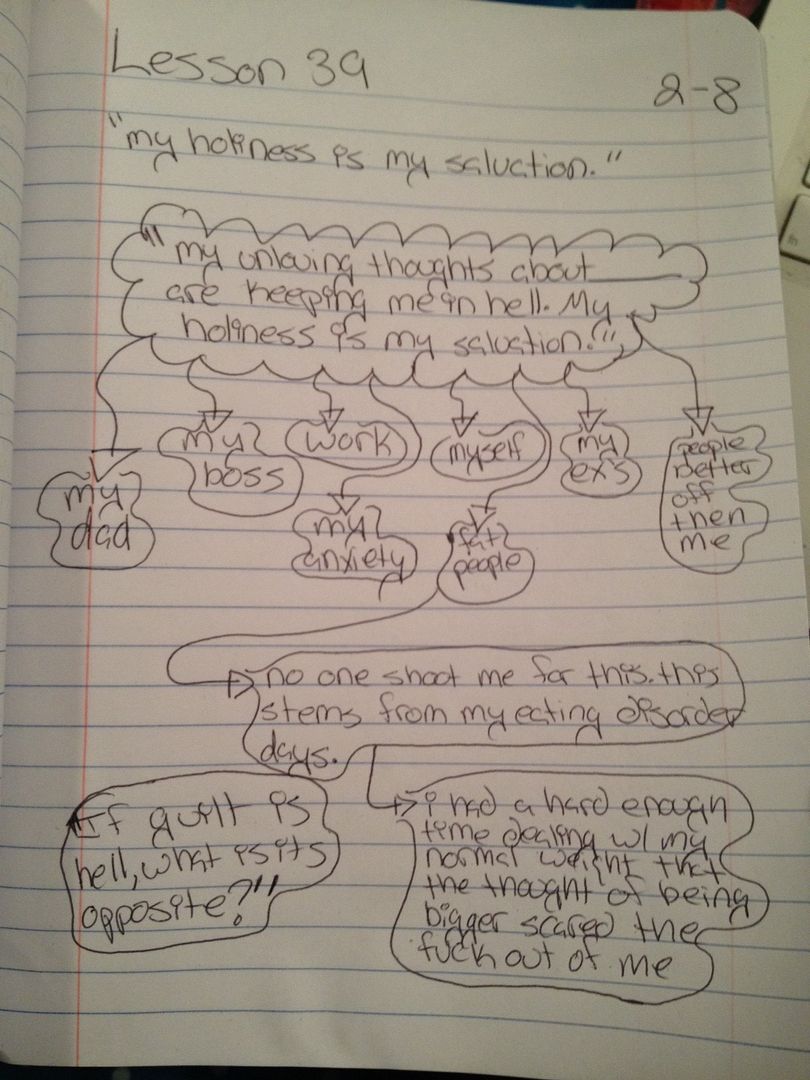 Lesson 39
2-8
"my holiness is my salvation."
"my unloving thoughts about ______
are keeping me in hell. My
holiness is my salvation."
my
dad
my
boss
work
my
anxiety
myself
fat
people
my
ex's
people
better
off
then
me
no one shoot me for this. this
stems from my eating disorder
days.
i had a hard enough
time dealing w/ my
normal weight that
the thought of being
bigger scared the
fuck out of me
"If guilt is
hell, what is its
opposite?"